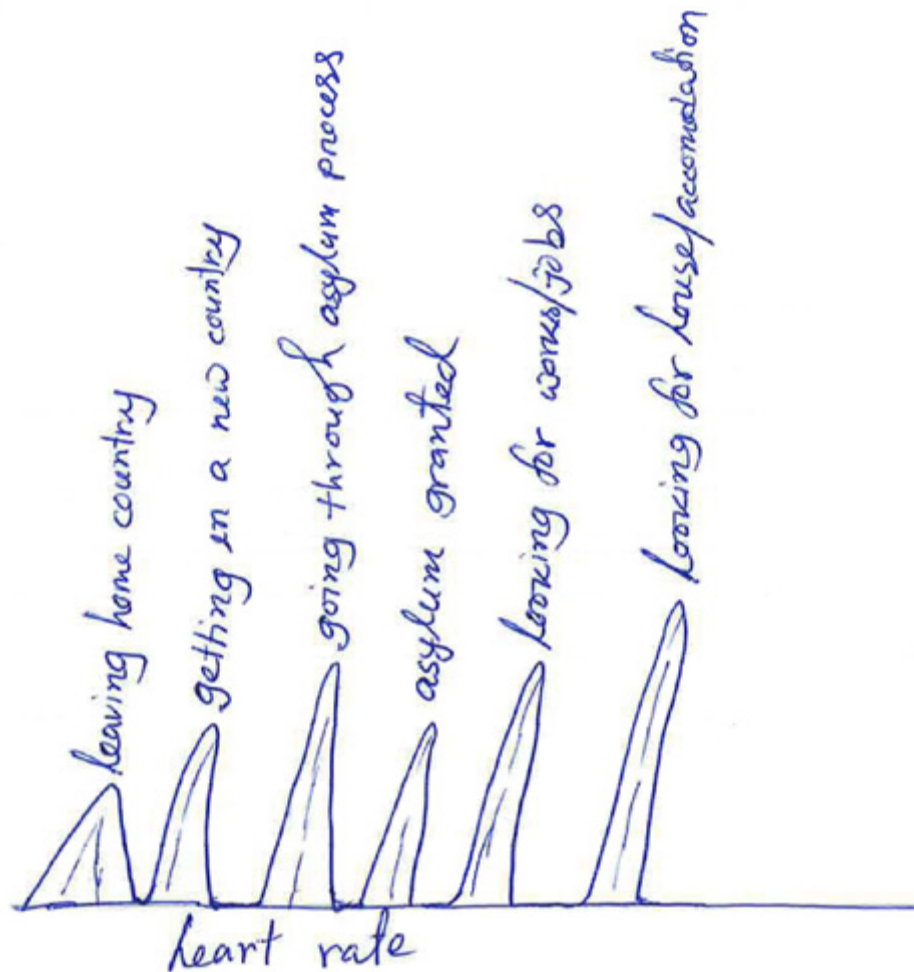 leaving home country
getting in a new country
going through asylum process
asylum granted
looking for works/jobs
looking for house/accomodation
heart rate